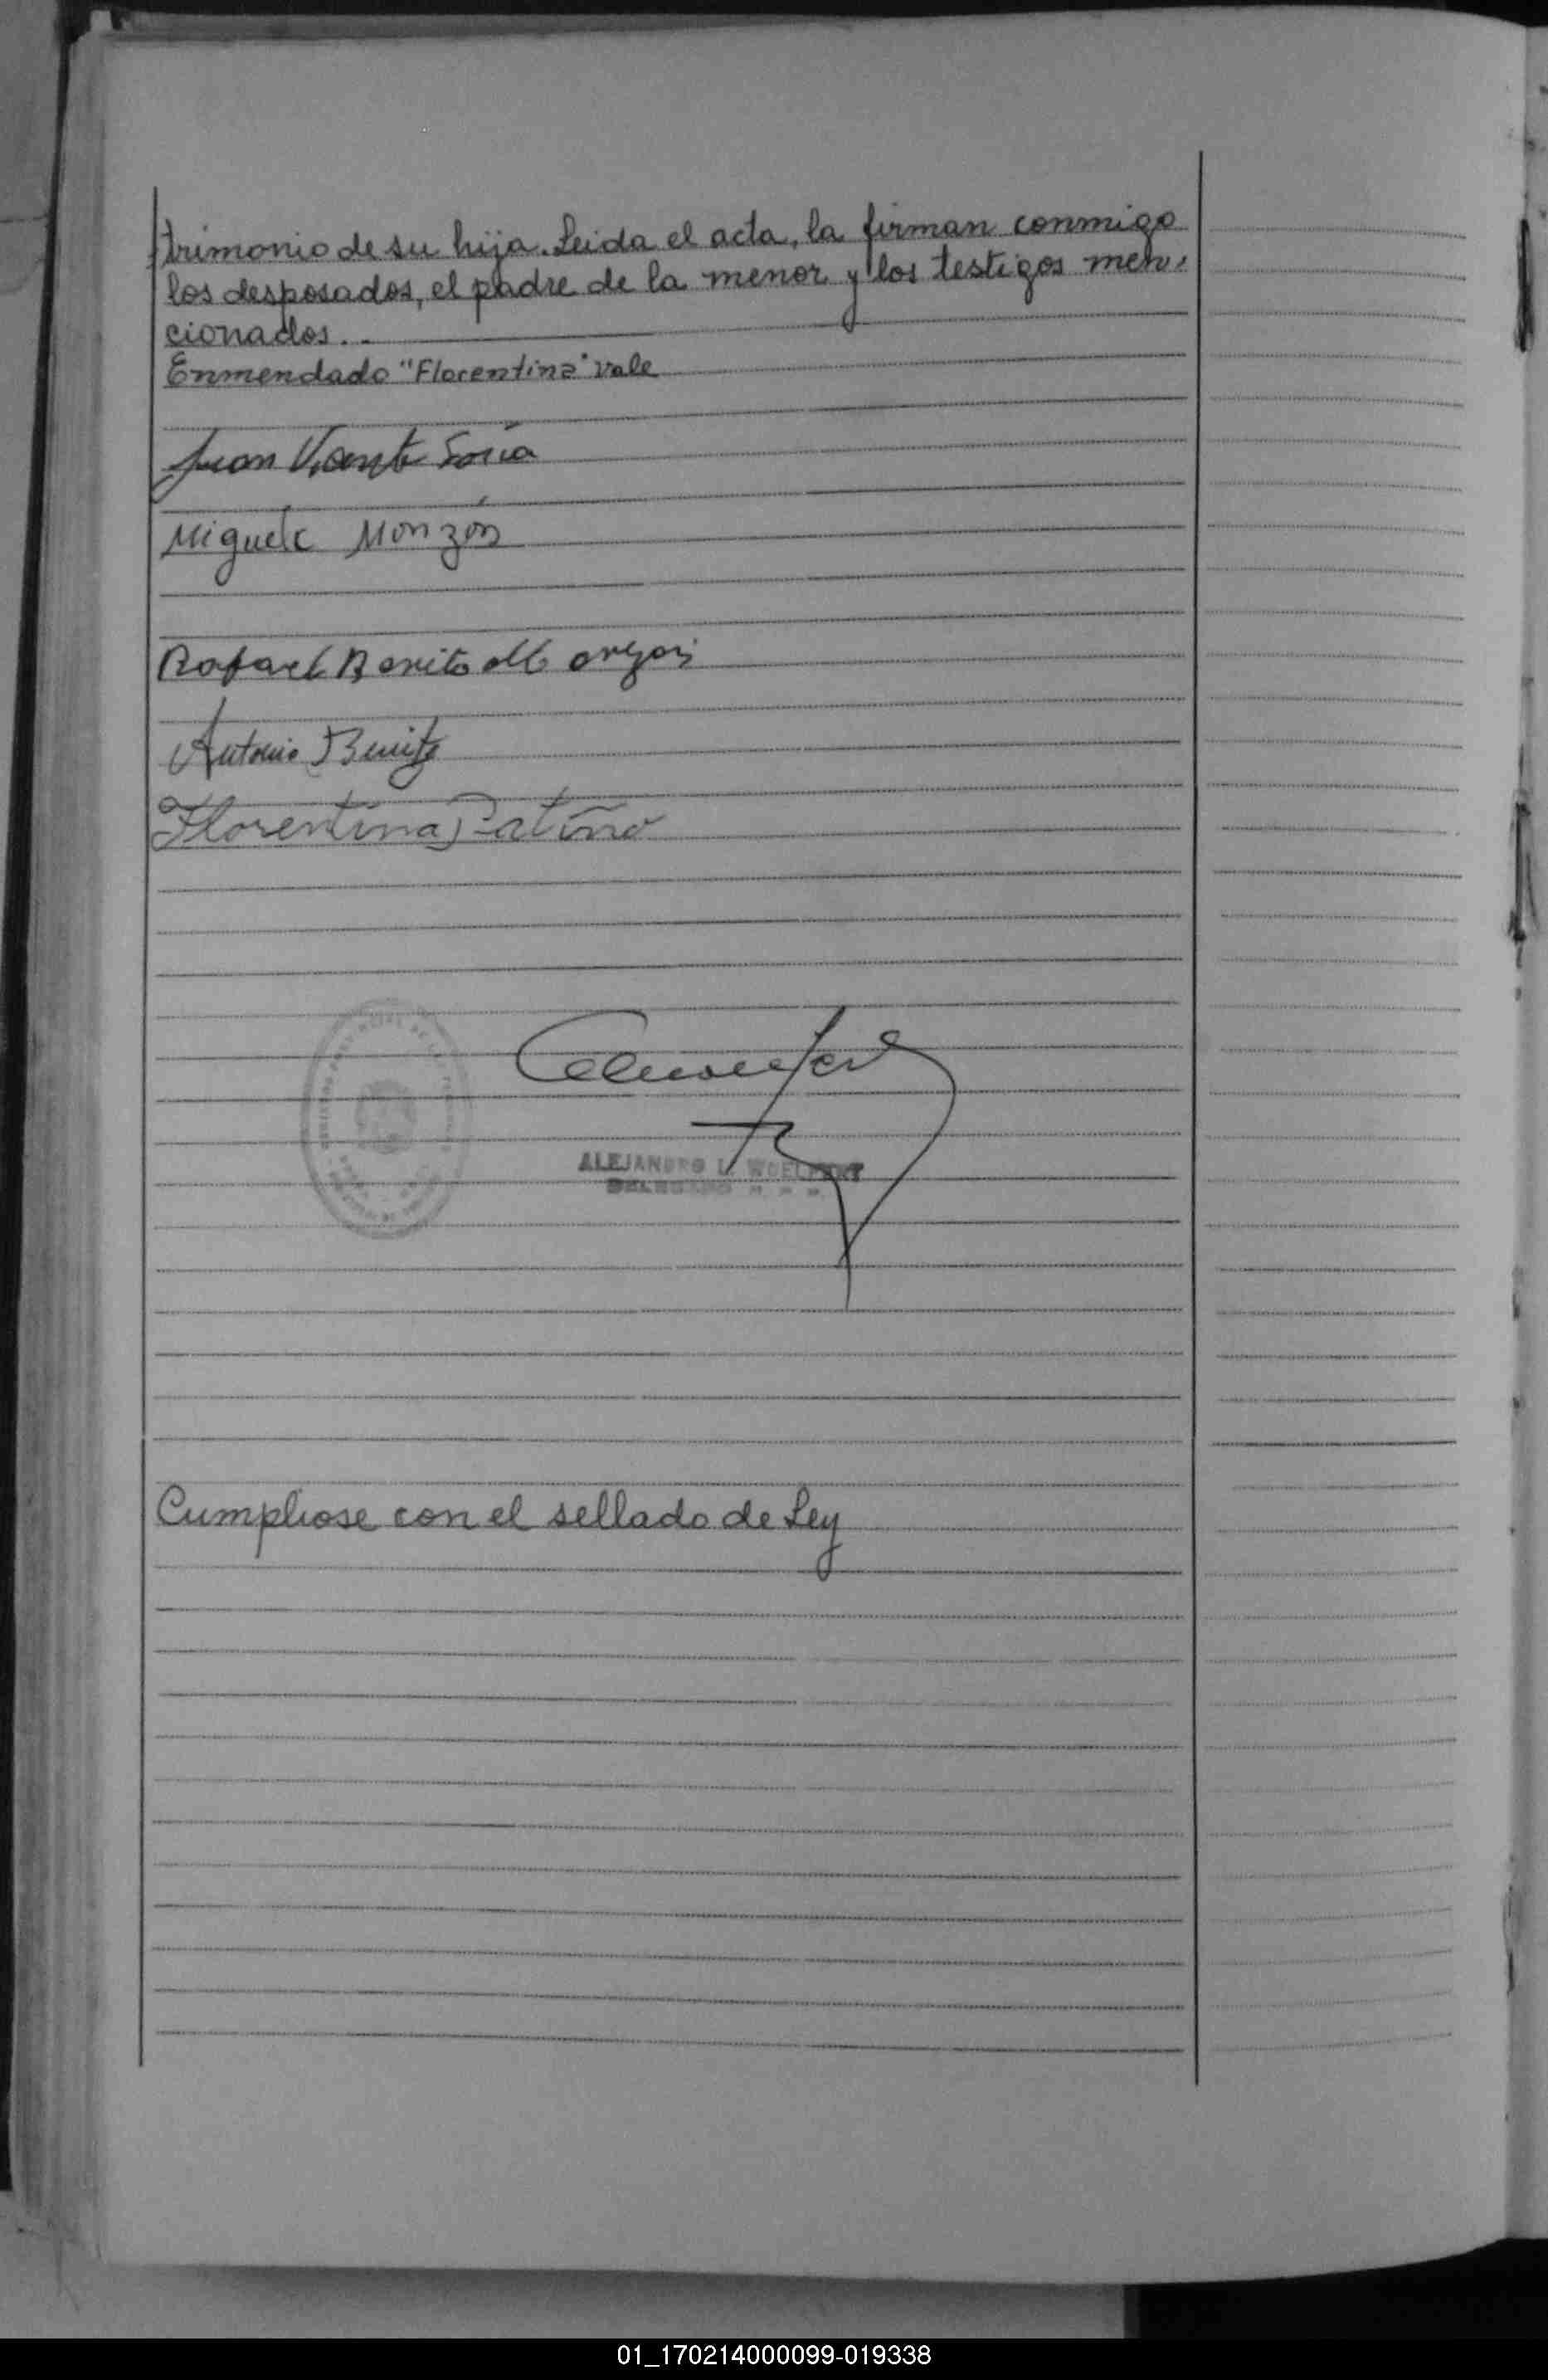 trimonio de su hija. Leida el acta, la firman conmigo
los desposados, el padre de la menor y los testigos men-
cionados. . -
Enmendado "Florentina" vale
Juan Vicente Soria
Miguela Monzón
Rafael Benito Monzon
Antonio Benitz
Florentina Patiño
ALEJANDRO L. WOELFERT
Cumpliose con el sellado de Ley
01_170214000099-019338